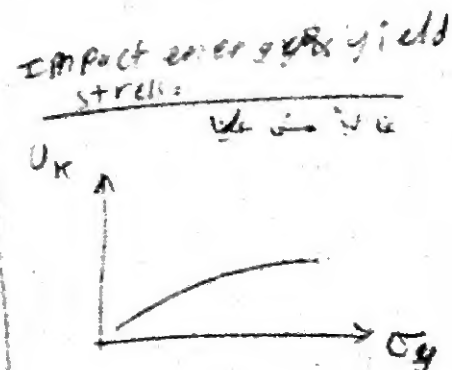 Impact energy & yield
stress
U_K
σ_y